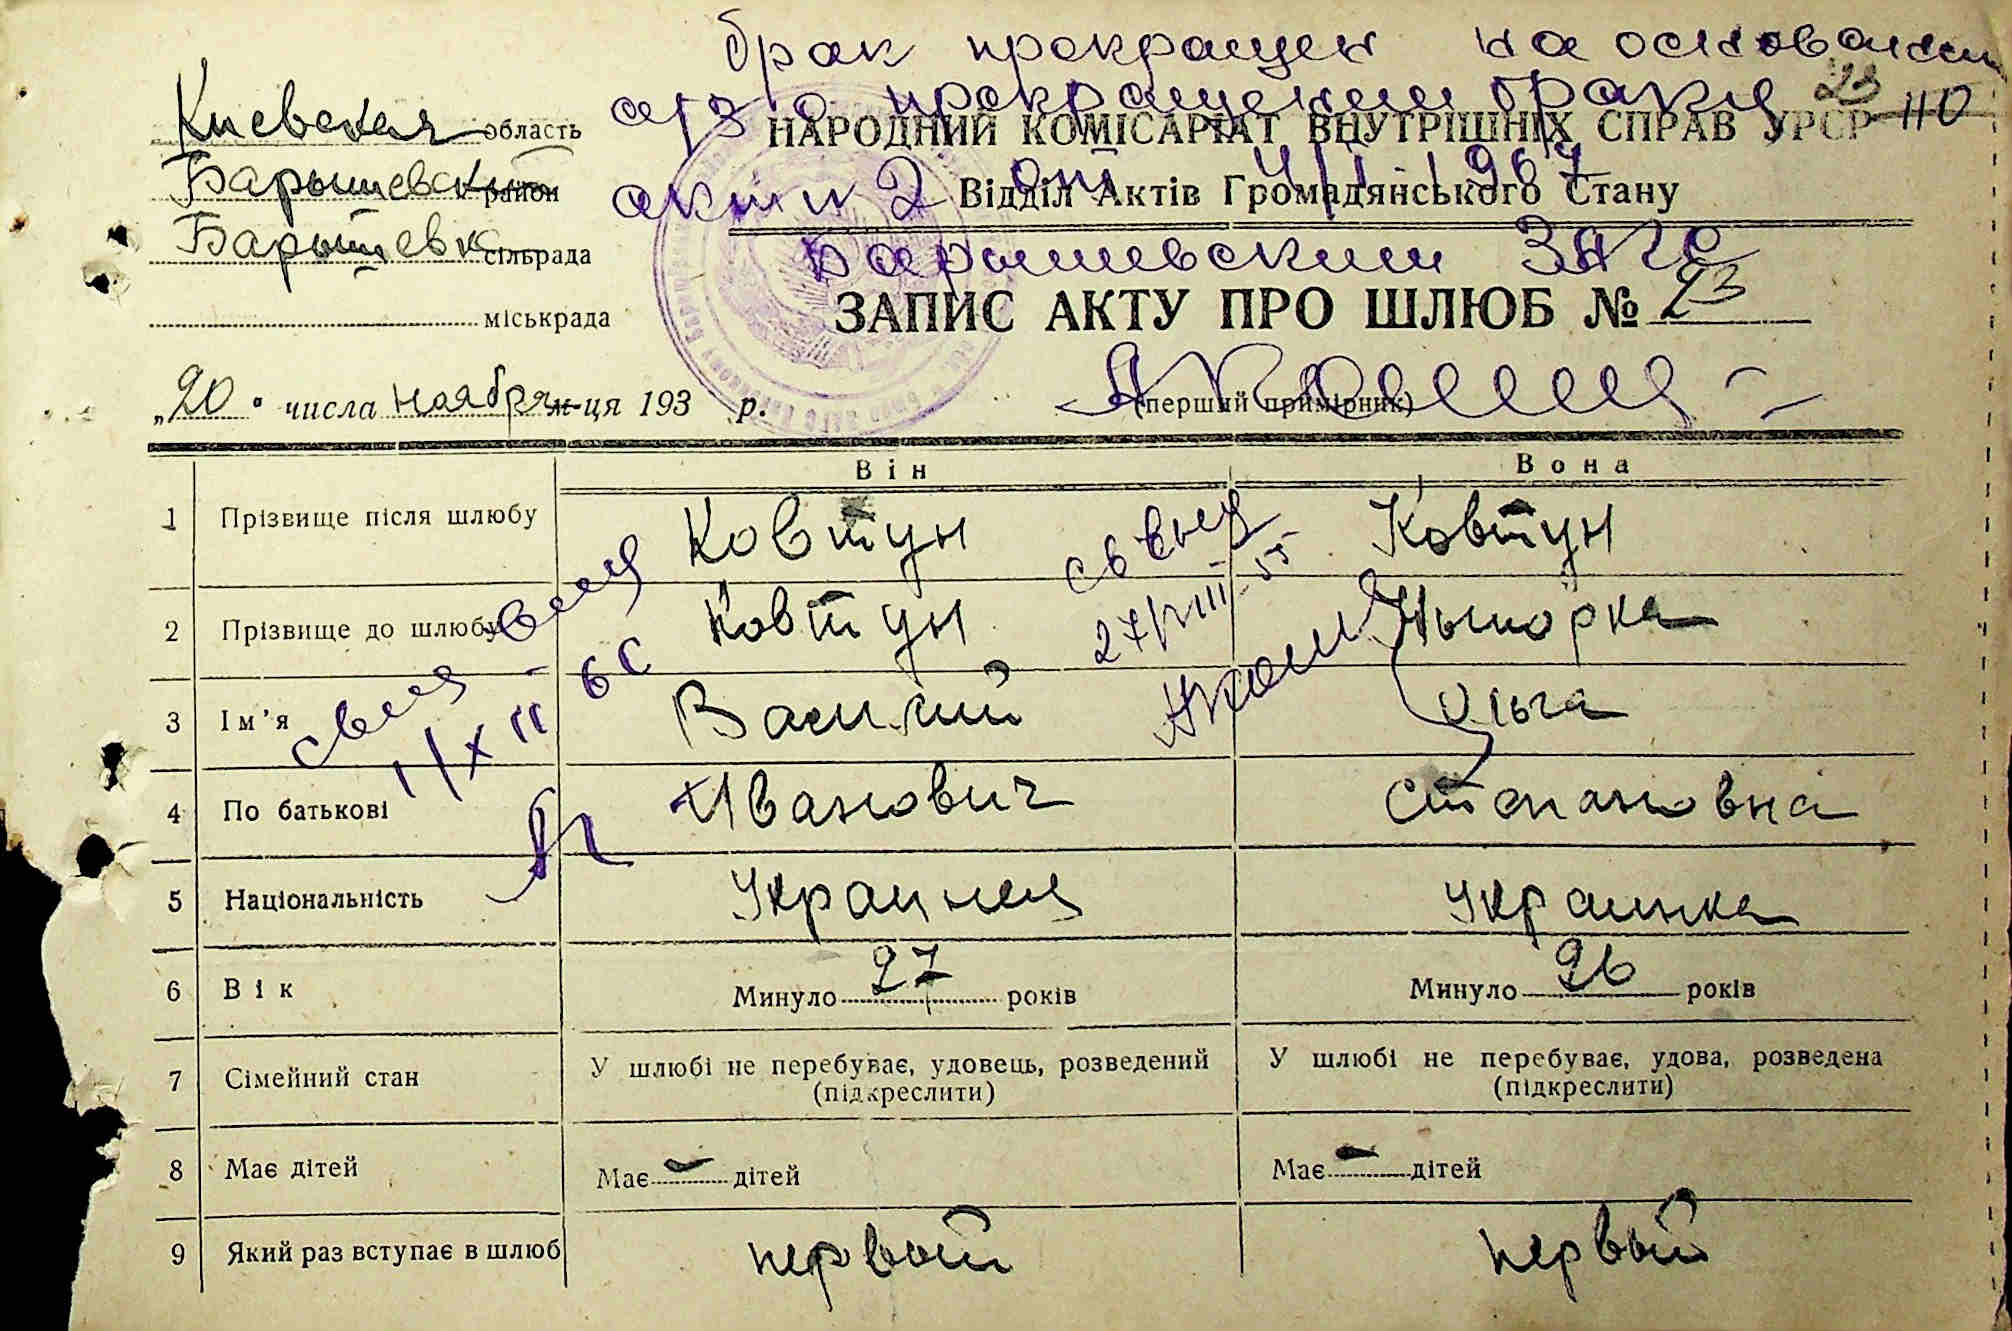 брак прекращен на основании
а/з о прекращении брака 23 110
Киевская область
НАРОДНИЙ КОМІСАРІАТ ВНУТРІШНІХ СПРАВ УРСР
Барышевский район
акт № 2 от 4/I 1967
Відділ Актів Громадянського Стану
Барышевск сільрада
Барышевским Загс
міськрада
ЗАПИС АКТУ ПРО ШЛЮБ № 23
„20" числа ноября м-ця 193 р.
(перший примірник)
Він Вона
1 Прізвище після шлюбу Ковтун Ковтун
2 Прізвище до шлюбу Ковтун
27/VIII-55
3 Ім'я Василий Ольга
1/XII 66
4 По батькові Иванович Степановна
5 Національність Украинец Украинка
6 Вік Минуло 27 років Минуло 26 років
7 Сімейний стан У шлюбі не перебуває, удовець, розведений У шлюбі не перебуває, удова, розведена
(підкреслити) (підкреслити)
8 Має дітей Має - дітей Має - дітей
9 Який раз вступає в шлюб первый первый